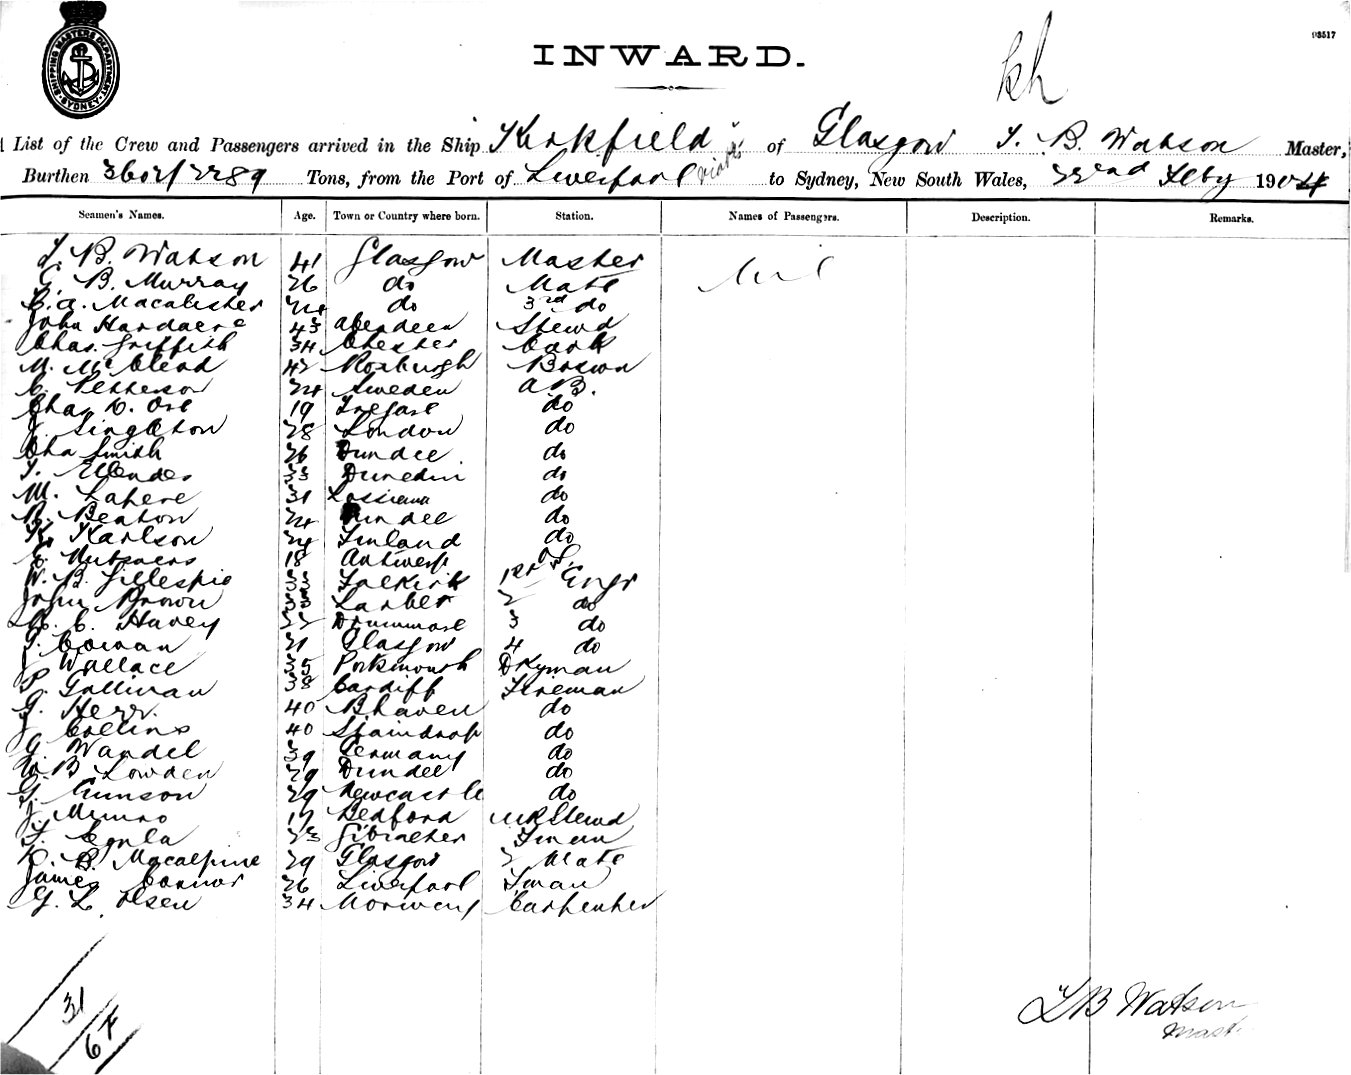 SHIPPING MASTERS DEPARTMENT SYDNEY
03517
INWARD.
kh
List of the Crew and Passengers arrived in the Ship "Kirkfield" of Glasgow T. B. Watson Master,
Burthen 3602/2289 Tons, from the Port of Liverpool to Sydney, New South Wales, 22nd Feby 1904
Seamen's Names. Age. Town or Country where born. Station. Names of Passengers. Description. Remarks.
T. B. Watson 41 Glasgow Master Nil
G. B. Murray 26 do Mate
C. A. Macalister 24 do 3rd do
John Hardacre 43 Aberdeen Stewd
Chas. Griffith 34 Chester Cook
M. McCleod 42 Roxburgh Bosun
C. Petterson 24 Sweden A.B.
Chas D. 19 do
J. Singleton 28 London do
Cha Smith 26 Dundee do
T. 33 Dunedin do
M. Lahere 31 do
R. Beaton 24 Dundee do
K. Karlson 24 Finland do
18 Antwerp O.S.
W. B. Gillespie 33 Falkirk 1st Engr
John Brown 33 Larbert 2 do
C. Havey 22 Drummore 3 do
T. Cowan 21 Glasgow 4 do
J. Wallace 35 Portsmouth Dkyman
P. Gallivan 38 Cardiff Fireman
G. Herr. 40 Bhaven do
J. Collins 40 Staindrop do
G. Wandel 39 Germany do
W. B. Lowden 29 Dundee do
G. Gunson 29 Newcastle do
J. Munro 17 Bedford MR Stewd
F. 23 Gibralter Fman
R. B. Macalpine 29 Glasgow 2 Mate
James Connor 26 Liverpool Fman
G. L. Olsen 34 Norway Carpenter
31
67
T B Watson
Mast.